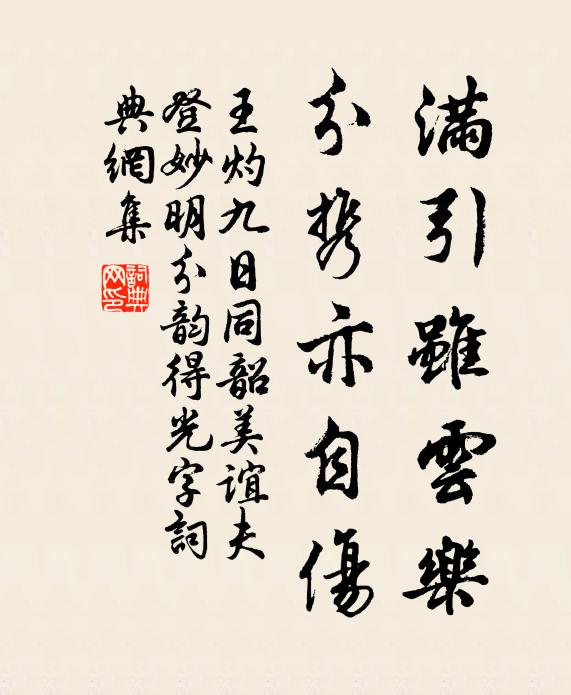 满引雖雲樂
分携亦自傷
王灼九日同韶美誼夫
登妙明分韵得光字詞
典網集
詞典网印